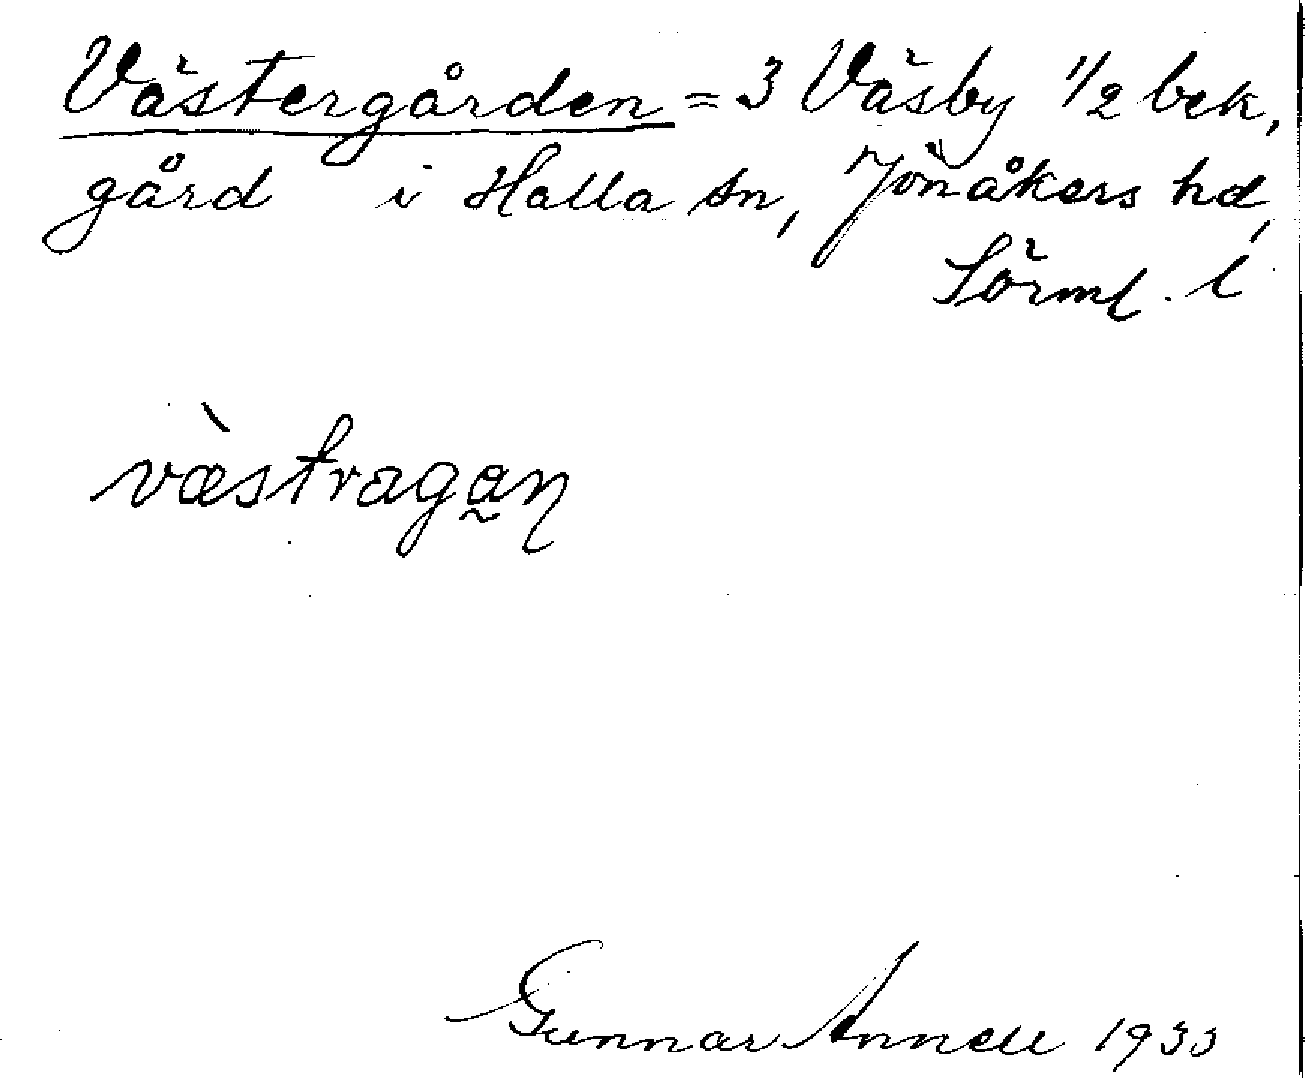 Västergården = 3 Väsby 1/2 bek,
gård i Halla sn, Jönåkers hd,
Sörml. l
væ̀straga̰n
Gunnar Annell 1933